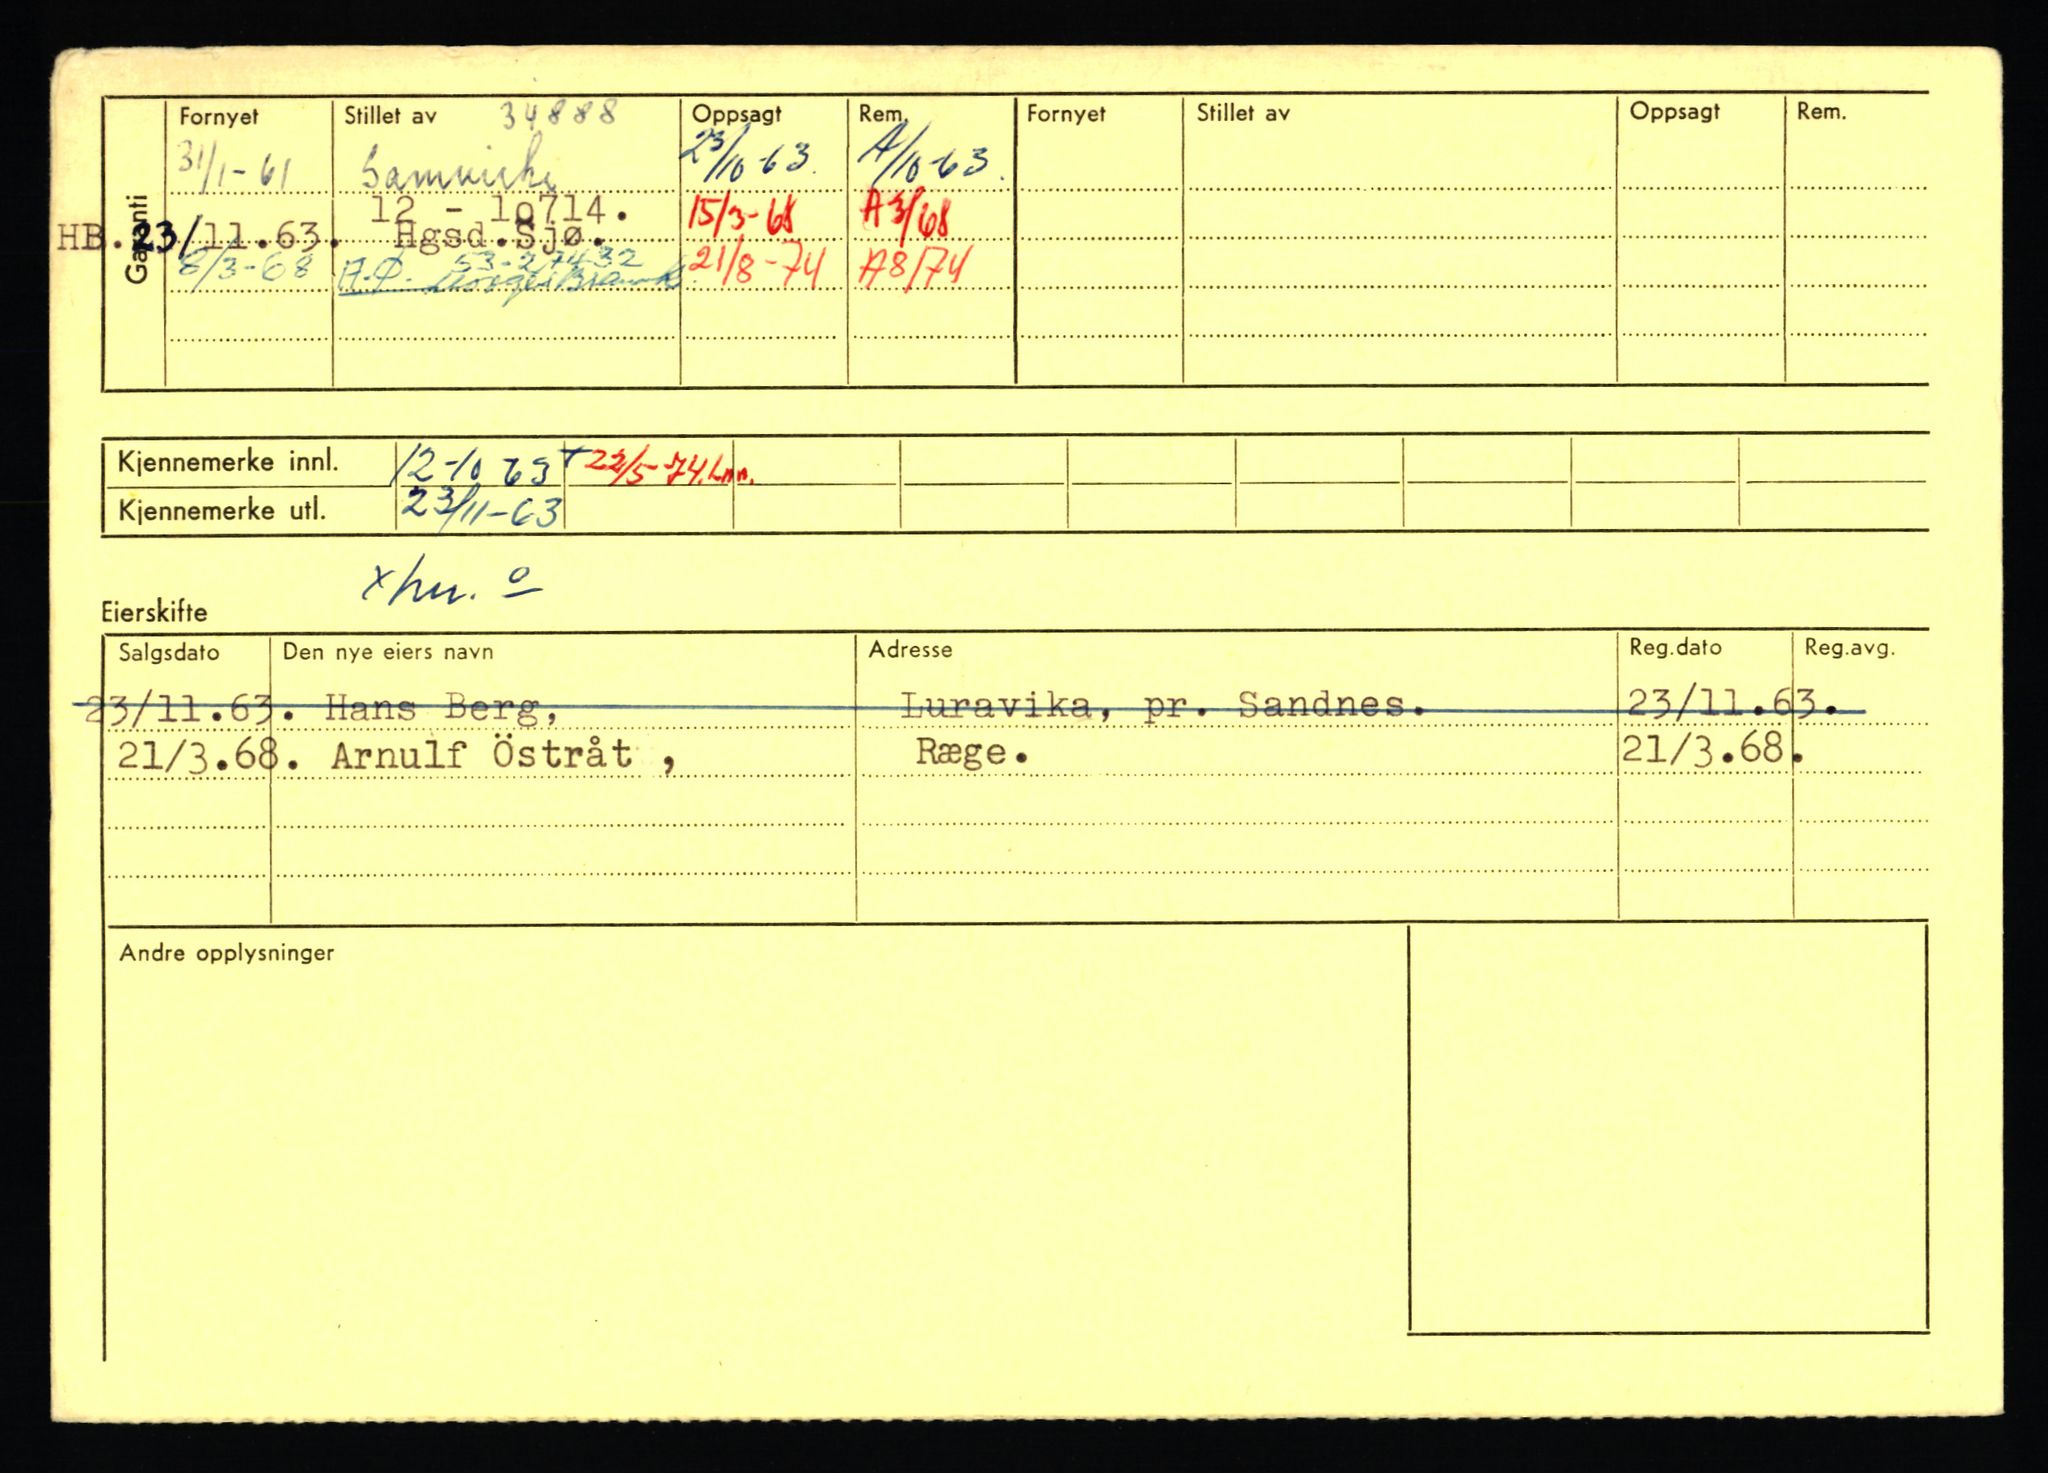 Garanti
Fornyet Stillet av 34888 Oppsagt Rem. Fornyet Stillet av Oppsagt Rem.
31/1-61 Samvirke 23/10-63. A/10-63.
12 - 10714. 15/3-68 A3/68
HB. 23/11.63. Hgsd.Sjø.
8/3-68 53-217432 21/8-74 A8/74
Kjennemerke innl. 12-10 63 + 22/5-74.
Kjennemerke utl. 23/11-63
Eierskifte
Salgsdato Den nye eiers navn Adresse Reg.dato Reg.avg.
23/11.63. Hans Berg, Luravika, pr. Sandnes. 23/11.63.
21/3.68. Arnulf Östråt , Ræge. 21/3.68.
Andre opplysninger